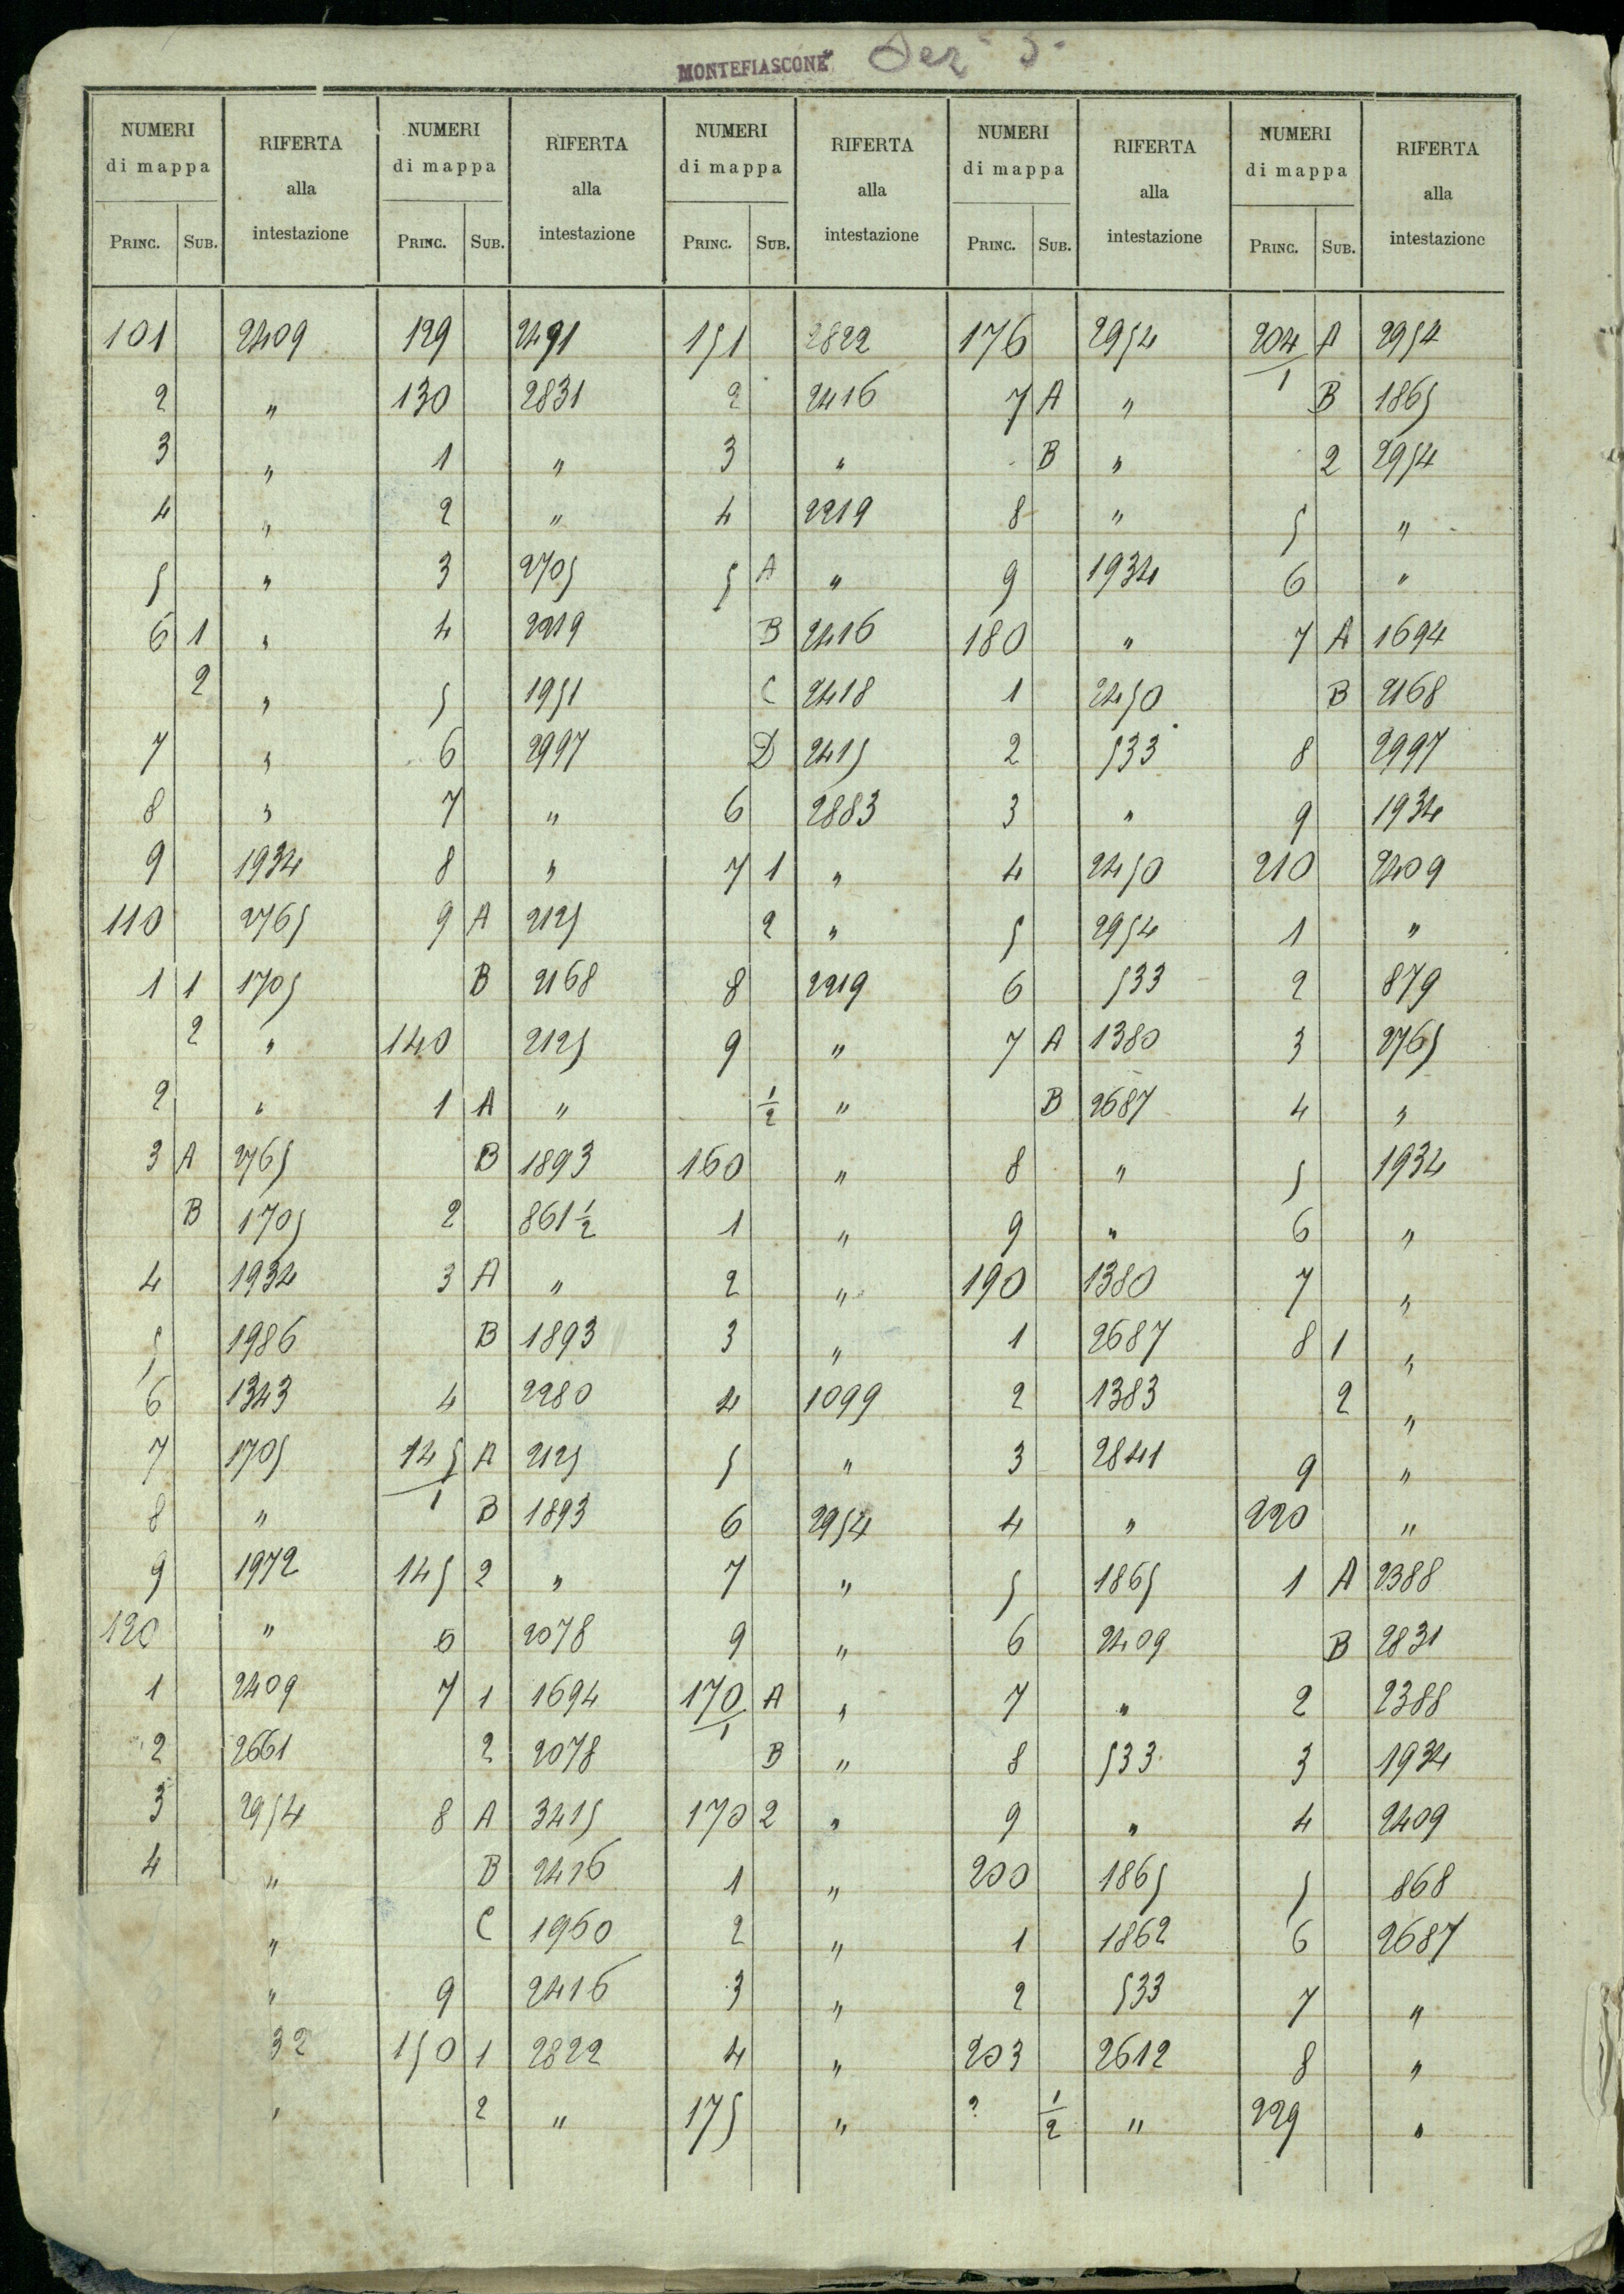 MONTEFIASCONE Sez. 3ª
NUMERI di mappa RIFERTA alla intestazione NUMERI di mappa RIFERTA alla intestazione NUMERI di mappa RIFERTA alla intestazione NUMERI di mappa RIFERTA alla intestazione NUMERI di mappa RIFERTA alla intestazione
PRINC. SUB. PRINC. SUB. PRINC. SUB. PRINC. SUB. PRINC. SUB.
101 2409 129 2491 151 2822 176 2954 204/1 A 2954
2 " 130 2831 2 2416 7 A " B 1865
3 " 1 " 3 " B " 2 2954
4 " 2 " 4 2219 8 " 5 "
5 " 3 2705 5 A " 9 1934 6 "
6 1 " 4 2219 B 2416 180 " 7 A 1694
2 " 5 1951 C 2418 1 2450 B 2168
7 " 6 2997 D 2415 2 533 8 2997
8 " 7 " 6 2883 3 " 9 1934
9 1934 8 " 7 1 " 4 2450 210 2409
110 2765 9 A 2125 2 " 5 2954 1 "
1 1 1705 B 2168 8 2219 6 533 2 879
2 " 140 2125 9 " 7 A 1380 3 2765
2 " 1 A " 1/2 " B 2687 4 "
3 A 2765 B 1893 160 " 8 " 5 1934
B 1705 2 861 1/2 1 " 9 " 6 "
4 1934 3 A " 2 " 190 1380 7 "
5 1986 B 1893 3 " 1 2687 8 1 "
6 1343 4 2280 4 1099 2 1383 2 "
7 1705 145/1 A 2125 5 " 3 2841 9 "
8 " B 1893 6 2954 4 " 220 "
9 1972 145 2 " 7 " 5 1865 1 A 2388
120 " 6 2078 9 " 6 2409 B 2831
1 2409 7 1 1694 170/1 A " 7 " 2 2388
2 2661 2 2078 B " 8 533 3 1934
3 2954 8 A 3415 170 2 " 9 " 4 2409
4 " B 2416 1 " 200 1865 5 868
" C 1960 2 " 1 1862 6 2687
" 9 2416 3 " 2 533 7 "
32 150 1 2822 4 " 203 2612 8 "
" 2 " 175 " ? 1/2 " 229 "